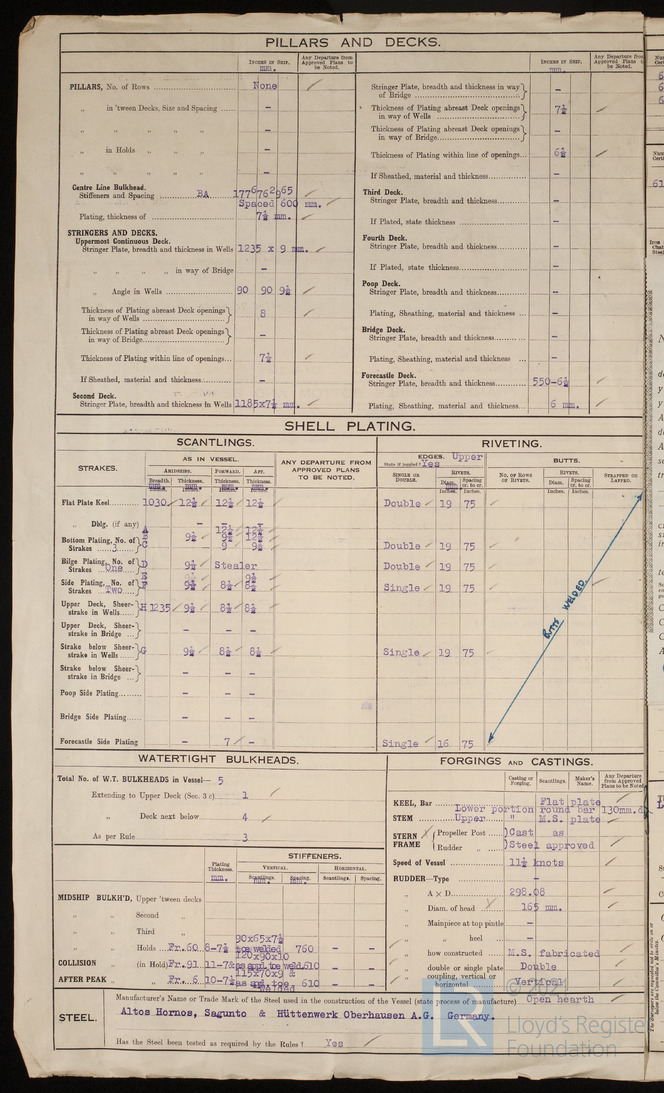 PILLARS AND DECKS.
INCHES IN SHIP.
mm.
Any Departure from Approved Plans to be Noted.
PILLARS, No. of Rows None
„ in 'tween Decks, Size and Spacing –
„ „ „ „ „ –
„ in Holds „ „ –
„ „ „ „ –
Centre Line Bulkhead.
Stiffeners and Spacing BA
Spaced 600 mm.
Plating, thickness of 7½ mm.
STRINGERS AND DECKS.
Uppermost Continuous Deck.
Stringer Plate, breadth and thickness in Wells 1235 x 9 mm.
„ „ „ „ in way of Bridge –
„ Angle in Wells 90 90 9½
Thickness of Plating abreast Deck openings in way of Wells 8
Thickness of Plating abreast Deck openings in way of Bridge –
Thickness of Plating within line of openings 7½
If Sheathed, material and thickness –
Second Deck.
Stringer Plate, breadth and thickness in Wells 1185x7½ mm.
INCHES IN SHIP.
mm.
Any Departure from Approved Plans to be Noted.
Stringer Plate, breadth and thickness in way of Bridge –
Thickness of Plating abreast Deck openings in way of Wells 7½
Thickness of Plating abreast Deck openings in way of Bridge –
Thickness of Plating within line of openings 6½
If Sheathed, material and thickness –
Third Deck.
Stringer Plate, breadth and thickness –
If Plated, state thickness –
Fourth Deck.
Stringer Plate, breadth and thickness –
If Plated, state thickness –
Poop Deck.
Stringer Plate, breadth and thickness –
Plating, Sheathing, material and thickness –
Bridge Deck.
Stringer Plate, breadth and thickness –
Plating, Sheathing, material and thickness –
Forecastle Deck.
Stringer Plate, breadth and thickness 550-6½
Plating, Sheathing, material and thickness 6 mm.
SHELL PLATING.
SCANTLINGS.
STRAKES.
AS IN VESSEL.
AMIDSHIPS. FORWARD. AFT.
Breadth. Thickness. Thickness. Thickness.
ANY DEPARTURE FROM APPROVED PLANS TO BE NOTED.
RIVETING.
EDGES. Upper
State if joggled? Yes
SINGLE OR DOUBLE.
RIVETS.
Diam. Spacing cr. to cr.
Inches. Inches.
BUTTS.
NO. OF ROWS OF RIVETS.
RIVETS.
Diam. Spacing cr. to cr.
Inches. Inches.
STRAPPED OR LAPPED.
Flat Plate Keel 1030 12½ 12½ 12½ Double 19 75
„ Dblg. (if any) – – –
Bottom Plating, No. of Strakes 3 A B C 9½ 12½ 9½ 9 12½ 12½ 9½ Double 19 75
Bilge Plating, No. of Strakes One D 9½ Stealer Double 19 75
Side Plating, No. of Strakes Two E F 9½ 8½ 9½ 8½ Single 19 75
Upper Deck, Sheerstrake in Wells H 1235 9½ 8½ 8½
Upper Deck, Sheerstrake in Bridge – –
Strake below Sheerstrake in Wells G 9½ 8½ 8½ Single 19 75
Strake below Sheerstrake in Bridge – – –
Poop Side Plating – – –
Bridge Side Plating – – –
Forecastle Side Plating – 7 – Single 16 75
BUTTS WELDED
WATERTIGHT BULKHEADS.
Total No. of W.T. BULKHEADS in Vessel– 5
Extending to Upper Deck (Sec. 3 c) 1
„ Deck next below 4
As per Rule 3
Plating Thickness.
mm.
STIFFENERS.
VERTICAL. HORIZONTAL.
Scantlings. Spacing. Scantlings. Spacing.
mm. mm.
MIDSHIP BULKH'D, Upper 'tween decks
„ „ Second „
„ „ Third „
„ „ Holds Fr.60 8-7½ 90x65x7½ toe welded 760 – –
COLLISION „ (in Hold) Fr.91 11-7½ 120x90x10 as appl. toe weld. 610 – –
AFTER PEAK „ „ Fr. 6 10-7½ 115x70x9 & as apl. toe welded 610 – –
FORGINGS AND CASTINGS.
Casting or Forging. Scantlings. Maker's Name. Any Departure from Approved Plans to be Noted
KEEL, Bar Flat plate
Lower portion round bar 130mm.d
STEM Upper „ M.S. plate
STERN FRAME
Propeller Post Cast as
Rudder „ Steel approved
Speed of Vessel 11½ knots
RUDDER–Type –
„ A x D 298.08
„ Diam. of head 165 mm.
„ Mainpiece at top pintle –
„ „ heel –
„ how constructed M.S. fabricated
„ double or single plate Double
„ coupling, vertical or horizontal Vertical
STEEL.
Manufacturer's Name or Trade Mark of the Steel used in the construction of the Vessel (state process of manufacture) Open hearth
Altos Hornos, Sagunto & Hüttenwerk Oberhausen A.G. Germany.
Has the Steel been tested as required by the Rules? Yes
LR
Lloyd's Registe
Foundation